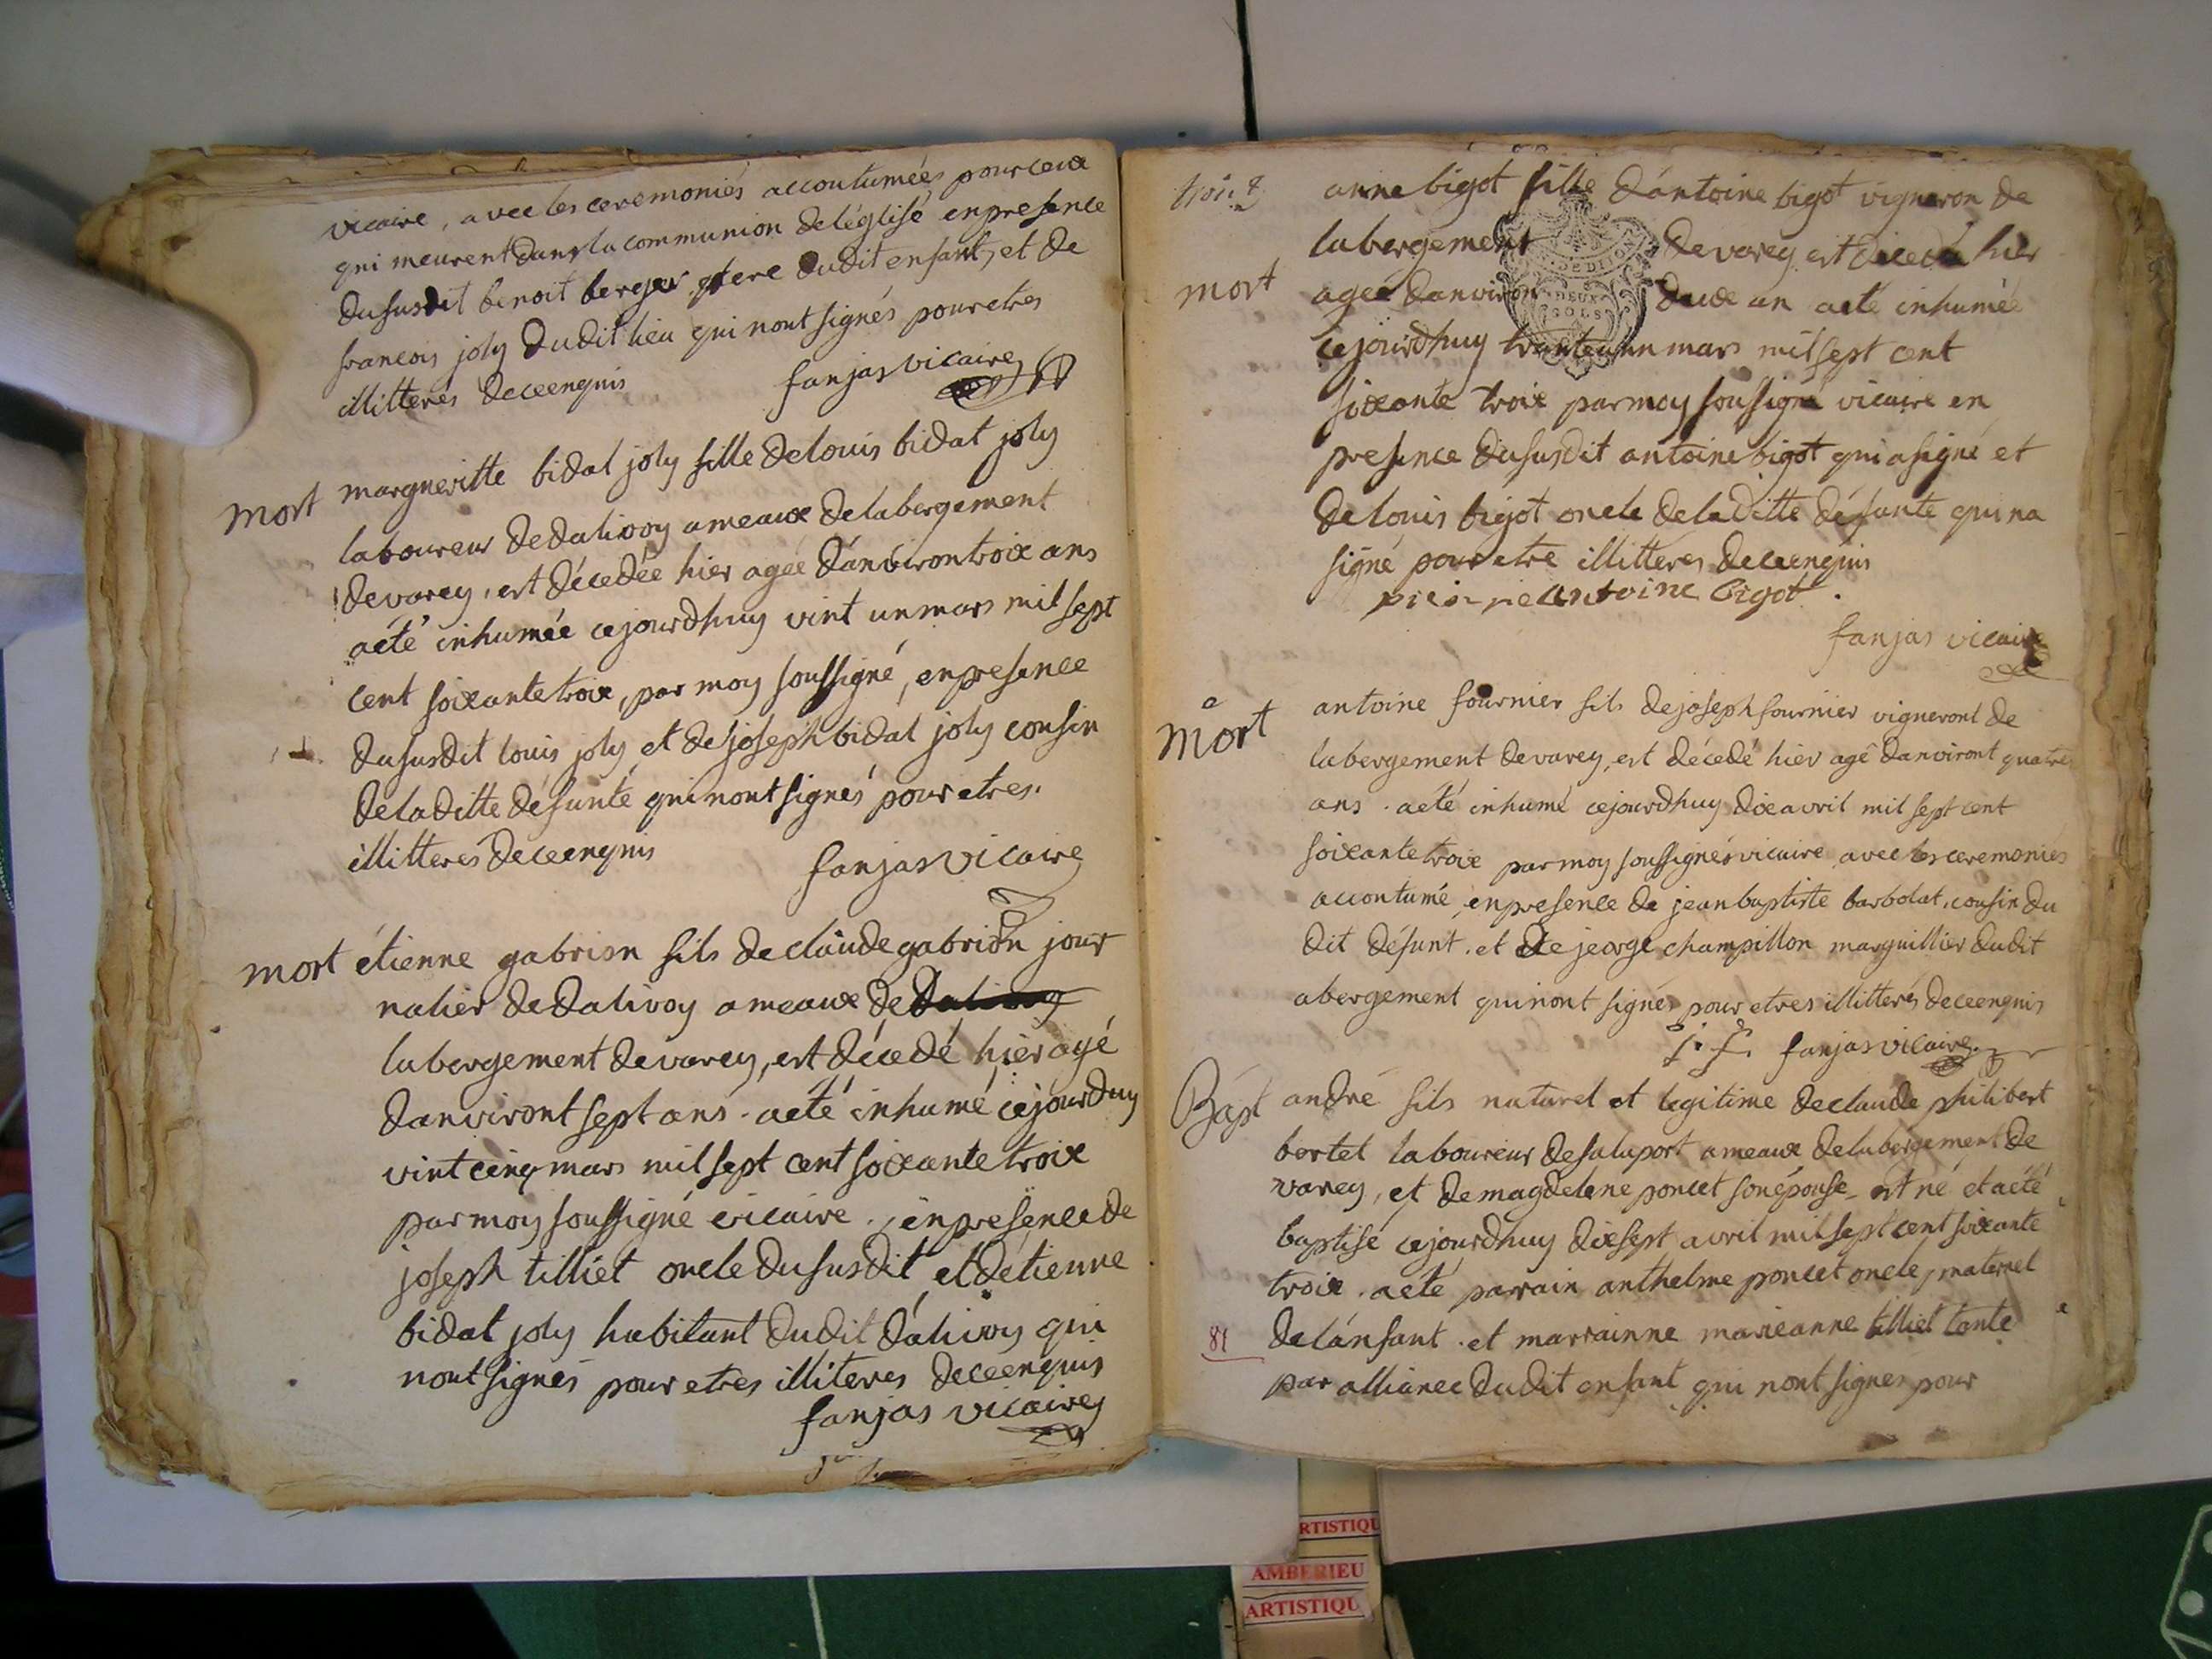 vicaire, avec les ceremoniés accoutumées pour ceux
qui meurent dans la communion de léglisé en presence
du susdit benoit berger pere dudit enfant, et de
francois joly dudit lieu qui nont signés pour etres
illitterés de ce enquis fanjas vicaire
mort margueritte bidat joly fille de louis bidat joly
laboureur de dalivoy ameaux de labergement
de varey, est décedée hier ageé dánviron troix ans
aété inhumée cejourdhuy vint un mars mil sept
cent soixante troix, par moy soussigné, en presence
du susdit louis joly et de joseph bidat joly cousin
de laditte défunte qui nont signés pour etres
illitterés de ce enquis fanjas vicaire
mort étienne gabrion fils de claude gabrion jour
nalier de dalivoy ameaux de dalivoy
labergement de varey, est décedé hier agé
danviront sept ans. aété inhumé cejourduy
vint cinq mars mil sept cent soixante troix
par moy soussigné vicaire, en presence de
joseph tilliet oncle du susdit et détienne
bidat joly habitant dudit dálivoy qui
nont signés pour etres illiteres de ce enquis
fanjas vicaire
anne bigot fille dántoine bigot vigneron de
labergement de varey est décedé hier
mort ageé danviron deux an aété inhumée
cejourdhuy trante un mars mil sept cent
soixante troix par moy soussigné vicaire en
presence du susdit antoine bigot qui a signé et
de louis bigot oncle de laditte défunte qui na
signé pour etre illitteres de ce enquis
pierre antoine bigot.
fanjas vicaire
DEUX
SOLS
mort antoine fournier fils de joseph fournier vigneront de
labergement de varey, est décedé hier agé danviront quatre
ans. aété inhumé cejourdhuy dix avril mil sept cent
soixante troix par moy soussignés vicaire avec les ceremonies
accoutumé, en presence de jean baptiste barbolat, cousin du
dit défunt. et de jeorge champillon marguillier dudit
abergement qui nont signés pour etres illitterés de ce enquis
fanjas vicaire
Bapt andré fils naturel et legitime de claude philibert
bertet laboureur de salaport ameaux de labergement de
varey, et de magdelene poncet son épouse est né et aété
baptisé cejourdhuy dix sept avril mil sept cent soixante
troix. aété parrain anthelme poncet oncle maternel
81 de lánfant. et marrainne marieanne tilliet tante
par alliance dudit enfant qui nont signes pour
RTISTIQU
AMBERIEU
ARTISTIQU